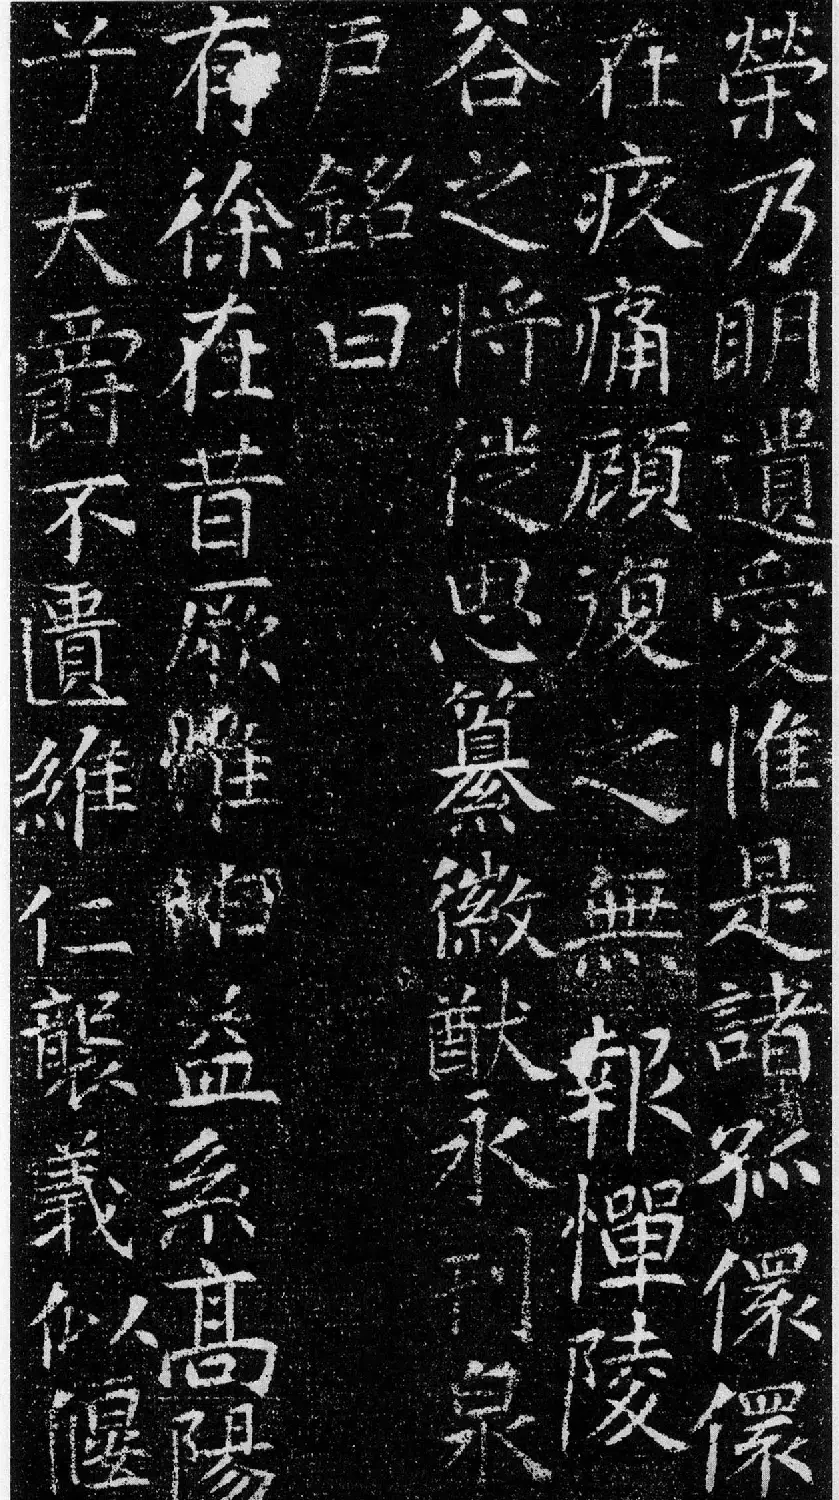 榮乃明遺愛惟是諸孤儇儇
在疚痛顧復之無報憚陵
谷之將從思纂徽猷永刊泉
戶銘曰
有徐在昔厥惟益系高陽
兮天爵不遺維仁襲義似偃